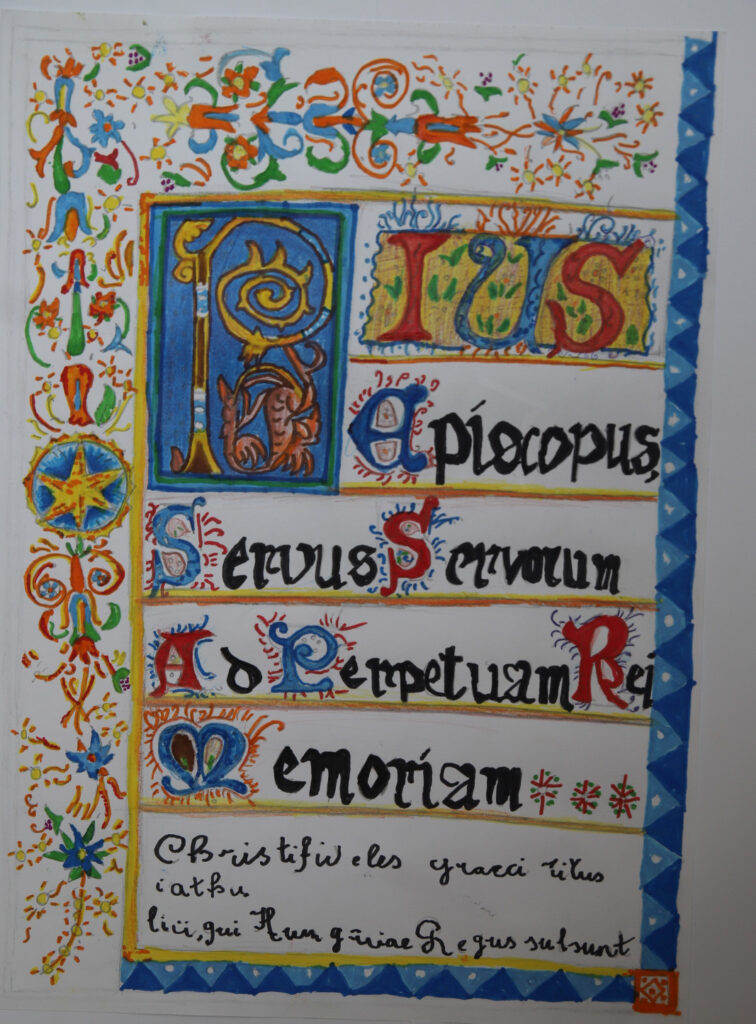 PIUS
Episcopus,
Servus Servorum
Ad Perpetuam Rei
Memoriam
Christifideles graeci ritus
iathu
lici, qui Hungariae Regus subsunt